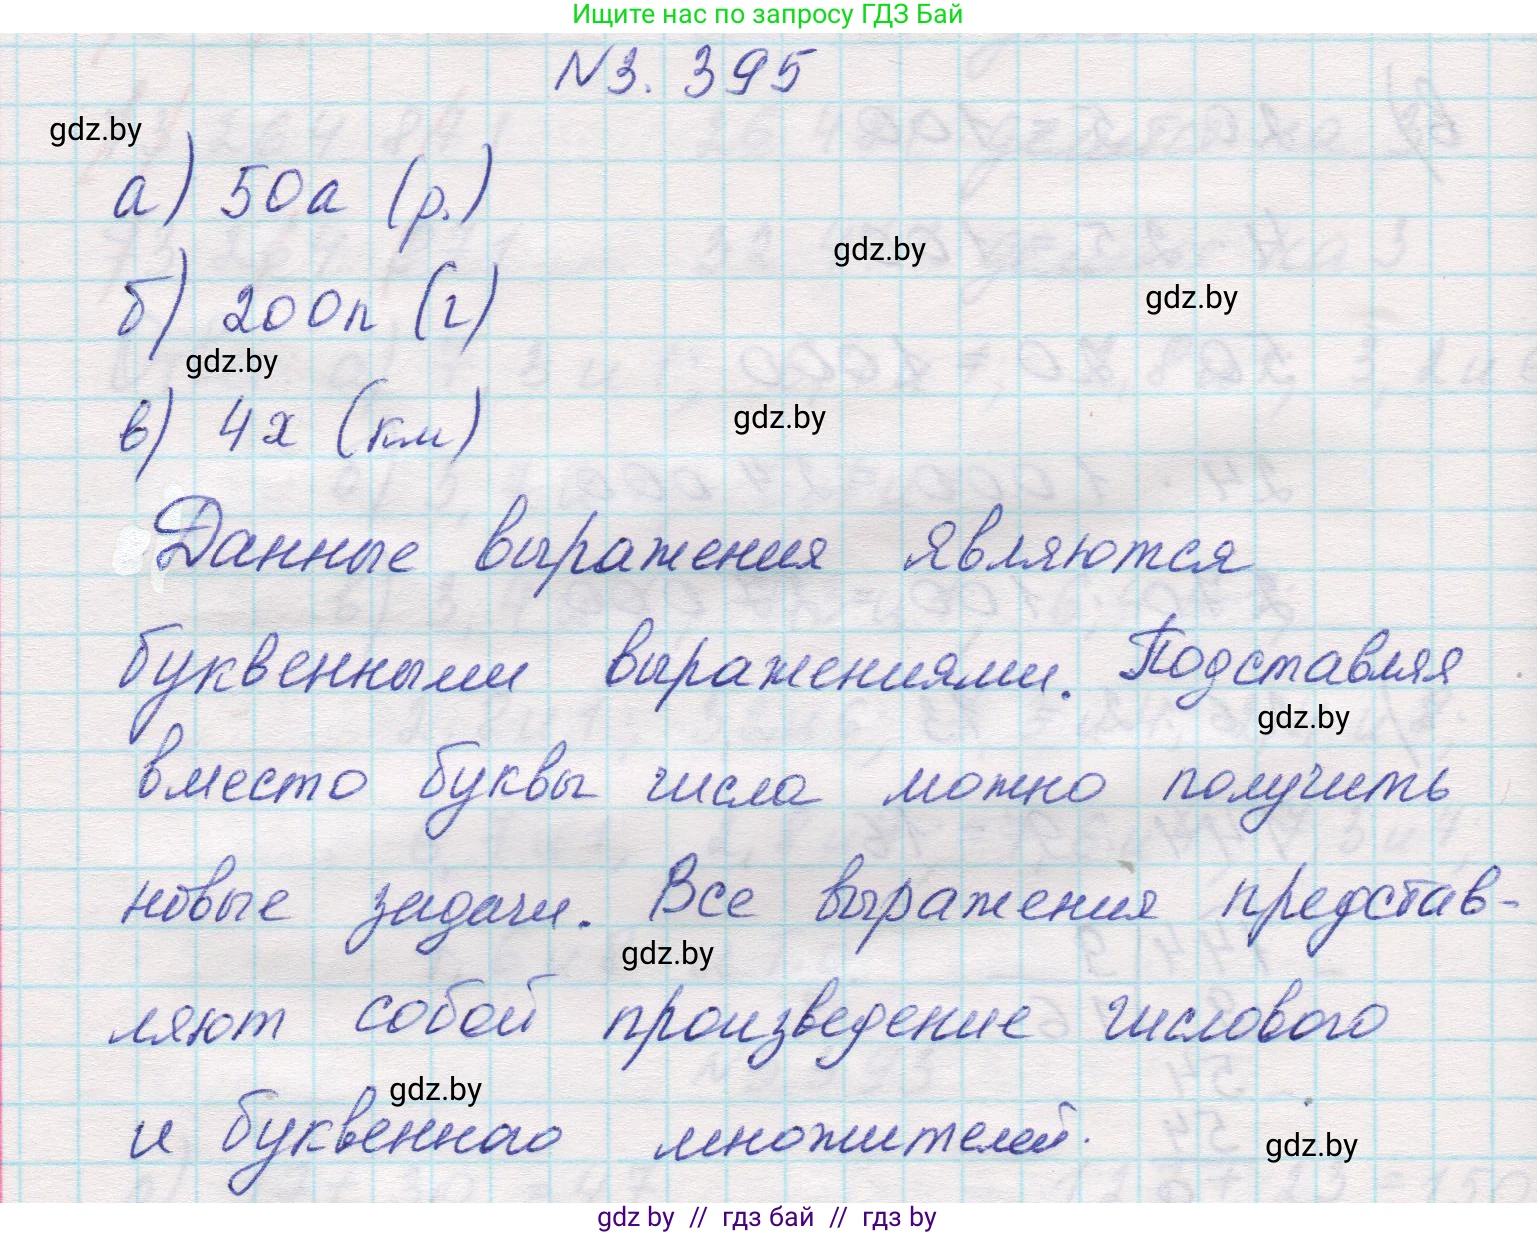 Ищите нас по запросу ГДЗ Бай
№3. 395
gdz.by
а) 50a (р.)
gdz.by
б) 200n (г)
gdz.by
gdz.by
в) 4x (км)
gdz.by
Данные выражения являются
буквенными выражениями. Подставляя
gdz.by
вместо буквы числа можно получить
новые задачи. Все выражения представ-
gdz.by
ляют собой произведение числового
gdz.by
и буквенного множителей.
gdz.by
gdz by // гдз бай // гдз by